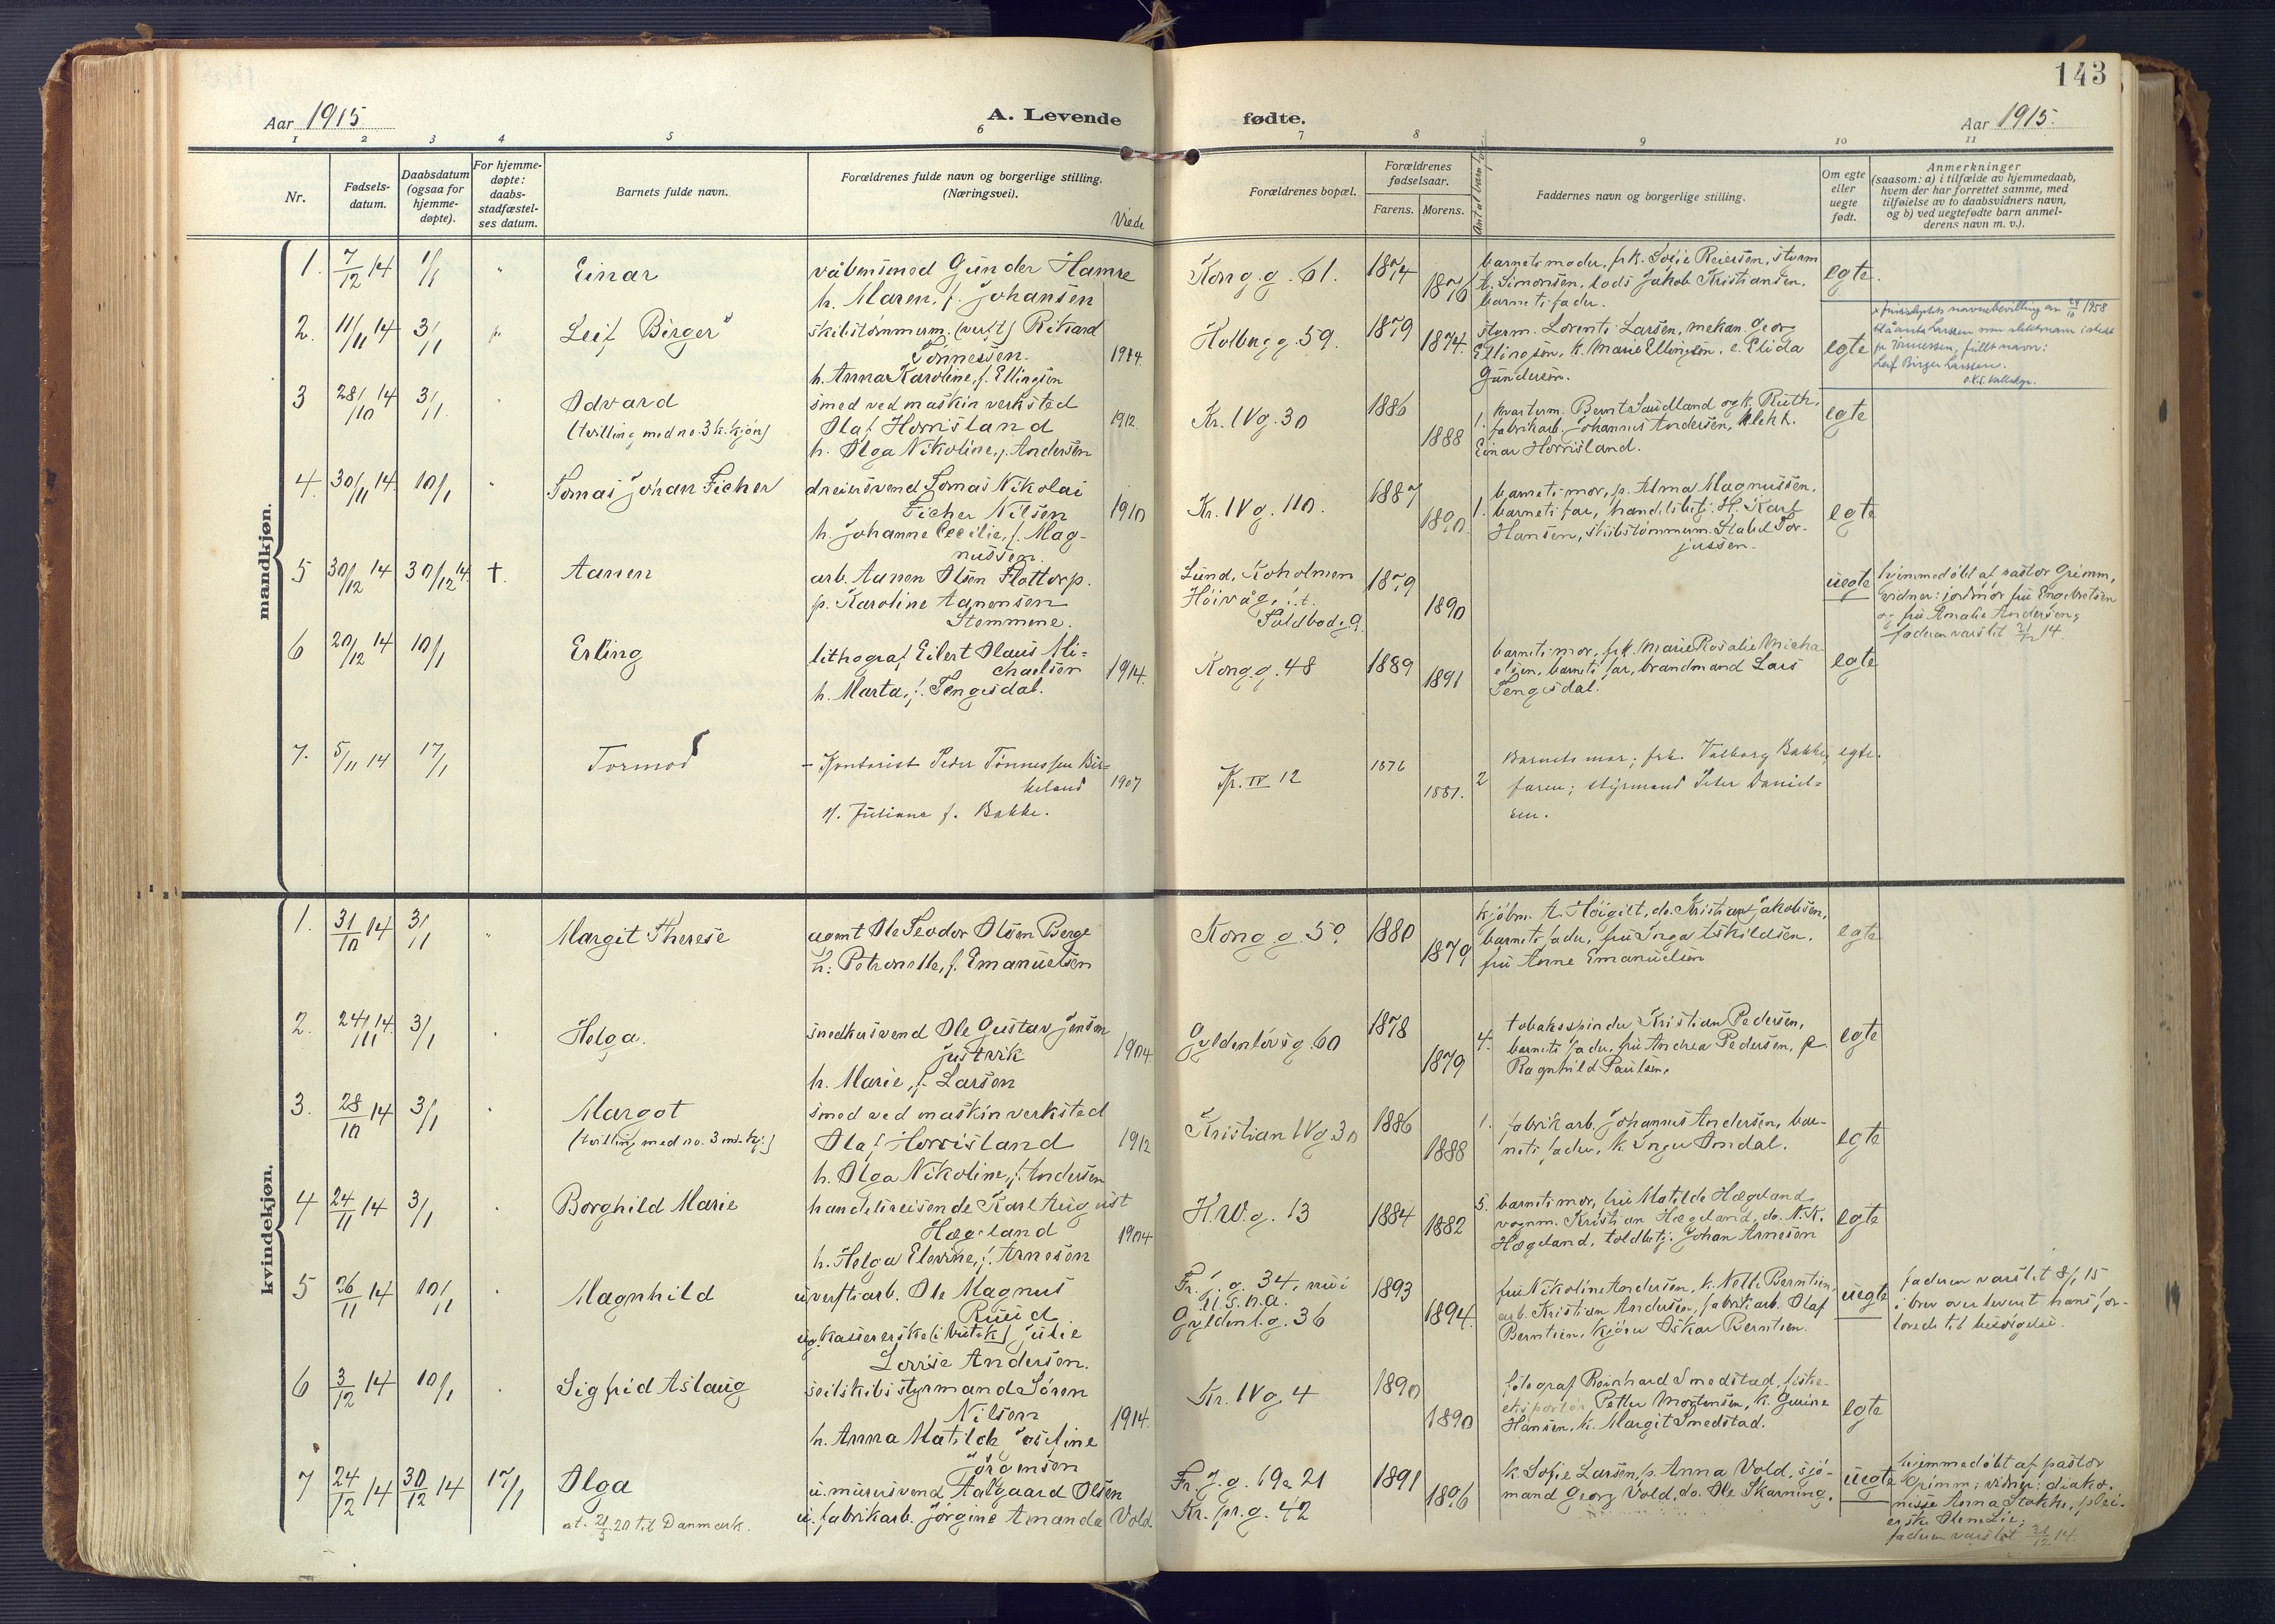 143
Aar 1915
A. Levende
fødte.
Aar 1915.
1 2 3 4 5 6 7 8 9 10 11
Nr.
Fødsels-
datum.
Daabsdatum
(ogsaa for
hjemme-
døpte).
For hjemme-
døpte:
daabs-
stadfæstel-
ses datum.
Barnets fulde navn.
Forældrenes fulde navn og borgerlige stilling.
(Næringsvei).
Viede
Forældrenes bopæl.
Forældrenes
fødselsaar.
Farens. Morens.
Faddernes navn og borgerlige stilling.
Om egte
eller
uegte
født.
Anmerkninger
(saasom: a) i tilfælde av hjemmedaab,
hvem der har forrettet samme, med
tilføielse av to daabsvidners navn,
og b) ved uegtefødte barn anmel-
derens navn m. v.).
mandkjøn.
1. 7/12 14 1/1 " Einar
våbensmed Gunder Hamre
h. Maren, f. Johansen
Kong.g. 61. 1874 1876
barnets moder, frk. Sofie Reiersen, styrm
A. Simonsen, lods Jakob Kristiansen,
barnets fader.
egte.
2. 11/11 14 3/1 Leif Birger
skibstømmerm. (verft) Rikard
Tønnessen.
h. Anna Karoline, f. Ellingsen
Holbergg. 59. 1879 1874.
styrm. Lorents Larsen, mekan. Georg
Ellingsen, k. Marie Ellingsen, e. Elida
Gundersen.
egte
Leif Birger Larssen.
3 28/10 14 3/1 " Odvard
(tvilling med no. 3 k. kjøn)
smed ved maskinverksted
Olaf Horrisland
h. Olga Nikoline, f. Andersen
1912
Kr. IV g. 30 1886 1888 1.
kvarterm. Bernt Saudland og k. Ruth,
fabrikarb. Johannes Andersen,
Einar Horrisland.
egte
4. 30/11 14. 10/1 " Tomas Johan Ficher
dreiersvend Tomas Nikolai
Ficher Nilsen
h. Johanne Cecilie, f. Mag-
nussen.
1910
Kr. IV g. 110. 1887 1890 1.
barnets mor, p. Alma Magnussen,
barnets far, handelsbetj. H. Karl
Hansen, skibstømmerm. Tor-
jussen.
egte
5 30/12 14 30/12 14. †. Aanen
arb. Aanen Olsen Flottorp.
p. Karoline Aanensen
Stemmene.
Lund, Koholmen
Høivåg, i.t.
Toldbodg. 9.
1879 1890
uegte
hjemmedøbt af pastor Grimm,
vidner: jordmor fru Engebretsen
og fru Amalie Andersen;
faderen varslet 31/12 14.
6 20/12 14 10/1 Erling
lithograf Eilert Olaus Mi-
chaelsen
h. Marta, f. Tengesdal.
1914.
Kongg. 48 1889 1891
barnets mor, frk. Marie Rosalie Micha-
elsen, barnets far, brandmand Lars
Tengesdal.
egte
7. 5/11 14 17/1 Tormod
Kontorist Peder Tønnessen Bir-
keland
H. Juliane f. Bakke.
1907
Kr. IV 12 1876 1881. 2
Barnets mor; frk. Valborg Bakke,
faren; styrmand Peter Daniel-
sen.
egte.
kvindekjøn.
1. 31/10 14 3/1 " Margit Therese
agent Ole Teodor Olsen Berge
h. Petronelle, f. Emanuelsen
Kongg. 50. 1880 1879
kjøbm. A. Høigilt, do. Kristian Jakobsen,
barnets fader, fru Inga Eskildsen,
fru Anne Emanuelsen
egte
2. 24/11 14. 3/1 Helga.
snedkersvend Ole Gustav Jensen
Justvik
h. Marie, f. Larsen
1904
Gyldenløvsg. 60 1878 1879 4.
tobakspinder Kristian Pedersen,
barnets fader, fru Andrea Pedersen, p.
Ragnhild Paulsen.
egte
3. 28/10 14 3/1 Margot
(tvilling med no. 3 m. kj.)
smed ved maskinverksted
Olaf Horrisland
h. Olga Nikoline, f. Andersen
1912
Kristian IV g. 30 1886 1888 1.
fabrikarb. Johannes Andersen, bar-
nets fader, k. Inger Omdal.
egte
4 24/11 14 3/1 Borghild Marie
handelsreisende Karl August
Hægeland
h. Helga Elevine, f. Arnesen
1904
K.IV.g. 13 1884 1882 5.
barnets mor, fru Matilde Hægeland,
vognm. Kristian Hægeland, do. N. K.
Hægeland, toldbetj. Johan Arnesen
egte
5 26/11 14 10/1 Magnhild
u. verftsarb. Ole Magnus
Ruud
ug. kassererske (i butik) Julie
Andersen.
Fr. j. g. 34, nu i
U.S.n.a.
Gyldenl.g. 36
1893 1894.
fru Nikoline Andersen, k. Nelli Berntsen,
arb. Kristian Andersen, fabrikarb. Olaf
Berntsen, kjører Oskar Berntsen.
uegte
faderen varslet 8/1 15
i brev oversendt hans for-
lovede til besørgelse.
6 3/12 14 10/1 Sigfrid Aslaug
seilskibsstyrmand Søren
Nilsen
h. Anna Matilde Josefine
Jørgensen
1914.
Kr. IV g. 4 1890 1890
fotograf Reinhard Smedstad, fiske-
eksportør Petter Mortensen, k. Gurine
Hansen, k. Margit Smedstad.
egte
7 24/12 14 30/12 14 17/1 Olga
at. 21/3 20 til Danmark.
u. murersvend Aalgaard Olsen
u. fabrikarb. Jørgine Amanda Vold.
Fr. J. g. 19a 21
Kr. pr. g. 42
1891 1896
k. Sofie Larsen, p. Anna Vold, sjø-
mand Georg Vold, do. Ole Skarning.
uegte
hjemmedøbt af pastor
Grimm; vidner: diako-
nisse Anna Stokke, plei-
erske
faderen varslet 31/12 14.